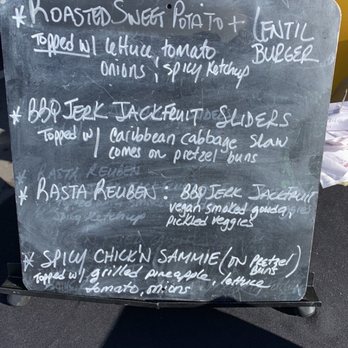 * ROASTED SWEET POTATO + LENTIL
BURGER
Topped w/ lettuce, tomato
onions, spicy ketchup
* BBQ JERK JACKFRUIT SLIDERS
Topped w/ Caribbean cabbage slaw
comes on pretzel buns
RASTA REUBEN
* RASTA REUBEN: BBQ JERK JACKFRUIT
vegan smoked gouda,
spicy ketchup
pickled veggies
* SPICY CHICK'N SAMMIE (ON Pretzel
Buns)
Topped w/ grilled pineapple, lettuce
tomato, onions